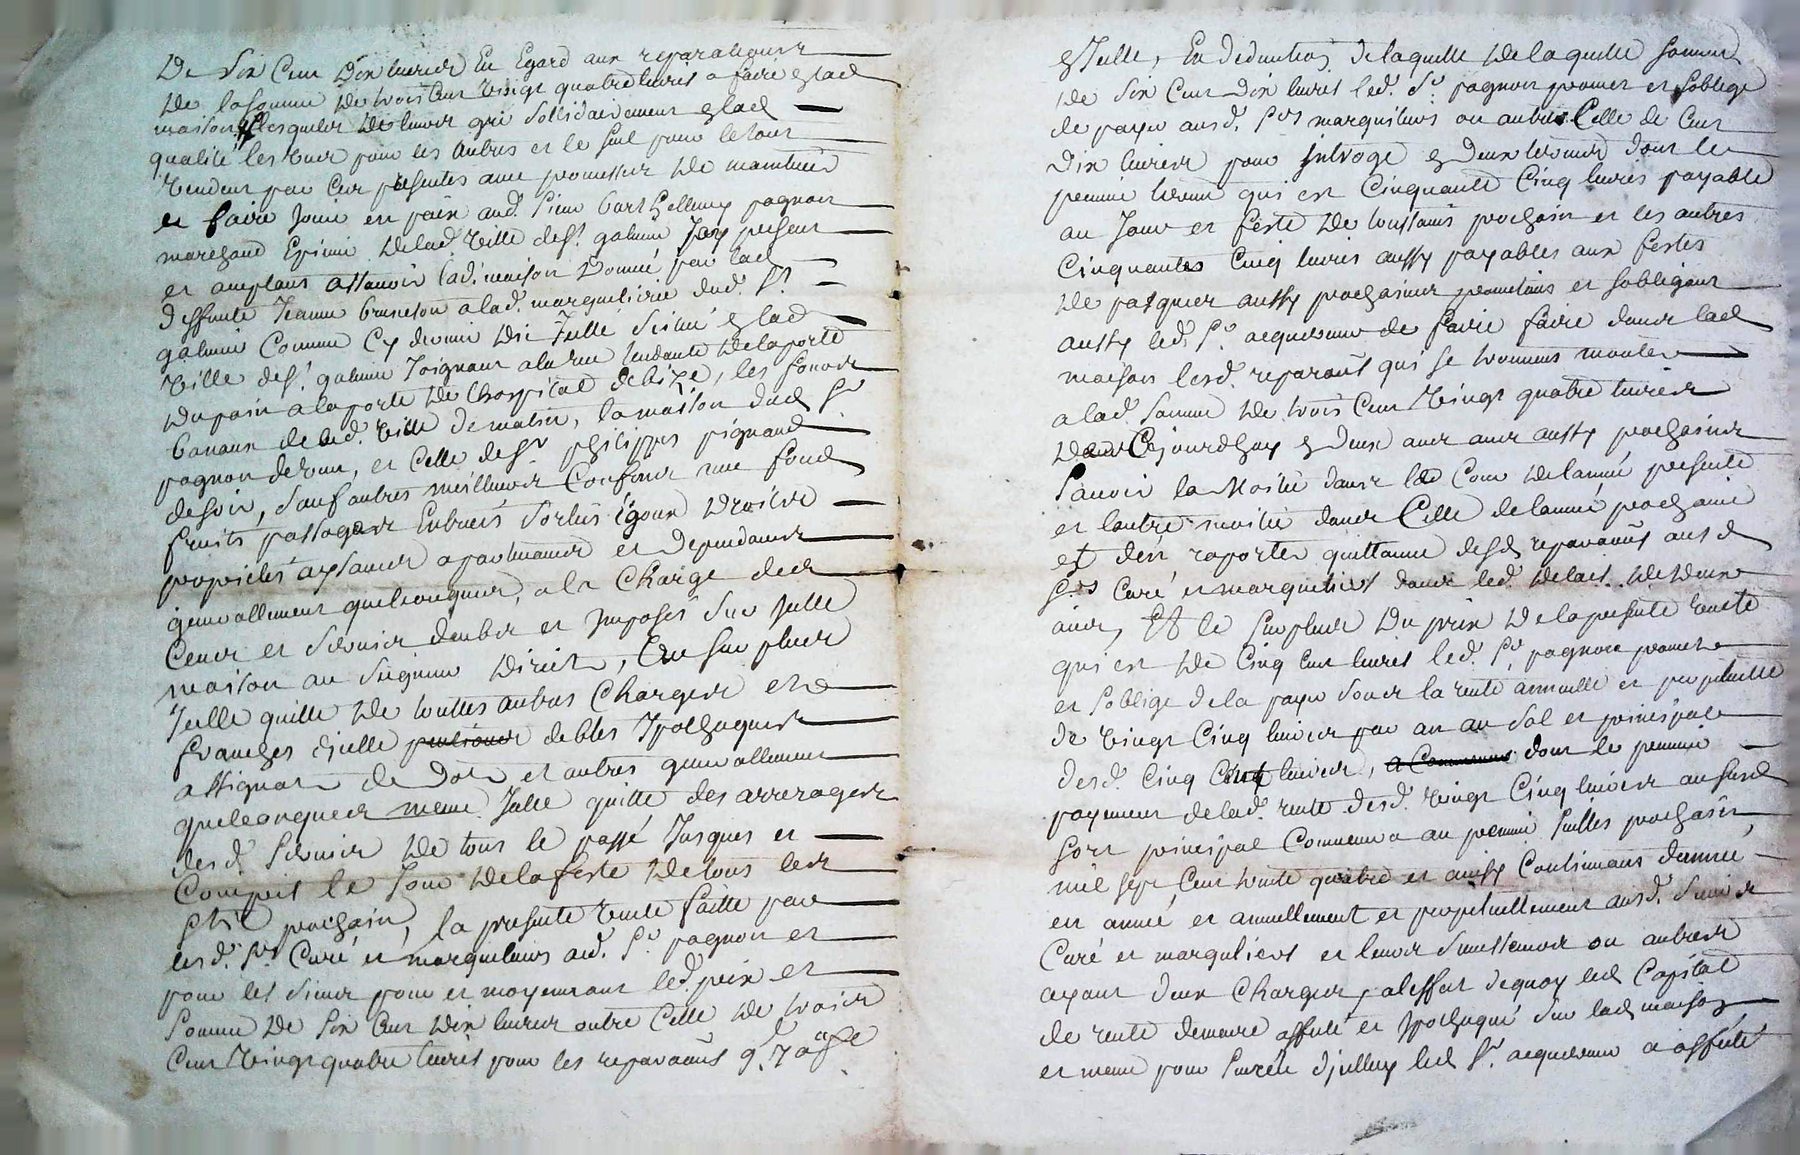 De Six Cent Dix livres Eu Egard aux reparations
De la somme De trois Cent Vingt quatre livres a faire a lad
maison lesquels De leur gré Sollidairement a lad
qualité les uns pour les autres et le seul pour le tout
Vendent par Ces presentes avec promesses De maintenir
et faire Jouir en paix aud. sieur barthellemy pagnon
marchand Epicier De lad. Ville de St. galmier Icy present
et acceptant assavoir lad. maison Donnée par lad
deffunte Jeanne a lad. marguilierie dud. St
galmier Comme Cy devant Dit Icelle Scitué a lad
Ville de St. galmier Joignant a la rue tendante De la porte
Dupain a la porte De Lhospital de bize, les fours
banaux de lad. Ville De matin, la maison dud. Sr
pagnon de vent, et Celle de Sr philippes pignard
de soir, Sauf autres meilleurs Confins avec fond
fruits passages Entrées Sorties Egoux Droits
proprietés aysances apartenances et Dependances
generallement quelconques, a la Charge des
Cens et Servis deubs et Imposés Sur Icelle
maison au Seigneur Direct, Et au surplus
Icelle quitte De touttes autres Charges et
franches d'icelle debtes Ypotheques
assignaon de Dot et autres generallement
quelconques meme Icelle quitte des arrerages
desd. Servis De tous le passé Jusques et
Compris le Jour De la feste De tous les
Sts prochain, la presente Vente faitte par
lesd. Srs Curé et marguiliers aud. Sr. pagnon et
pour les Siens pour et moyennant led. prix et
Somme De Six Cent Dix livres outre Celle De trois
Cent Vingt quatre livres pour les reparaons
a Icelle, En deduction de laquelle De laquelle somme
De Six Cent Dix livres led. Sr. pagnon promet et soblige
de payer ausd. Srs marguiliers ou autres Celle de Cent
Dix livres pour a Deux termes dont le
premier terme qui est Cinquante Cinq livres payable
au Jour et feste De toussaints prochain et les autres
Cinquantes Cinq livres aussy payables aux festes
De pasques aussy prochaines promettans et sobligeant
aussy led. Sr. acquereur de faire faire dans lad
maison lesd. reparaons qui se trouvent monter
a lad. Somme De trois Cent Vingt quatre livres
Dans Cejourdhuy a Deux ans aussy prochaines
Scavoir la Moitié dans le Cour De lannée presente
et lautre moitié dans Celle de lannée prochaine
et den raporter quittance desd reparaons ausd
Srs Curé et marguiliers dans led. Delais De Deux
ans, Et le Surplus Du prix De la presente Vente
qui est De Cinq Cent livres led. Sr. pagnon promet
et soblige de la payer Sous la rente annuelle et perpetuelle
de Vingt Cinq livres par an au Sol et principale
desd. Cinq Cent livres, dont le premier
payement de lad. rente desd. Vingt Cinq livres au susd
Sort principal Commencera au premier Juillet prochain
mil sept Cent trente quatre et ainsy Continuant dannée
en année et annuellement et perpetuellement ausd. Sieurs
Curé et marguliers et leurs Successeurs ou autres
ayant deux Charges, a leffet dequoy led Capital
de rente demeure affecté et Ypothequé Sur lad maison
et meme pour Sureté d'icelluy led Sr. acquereur a affecté